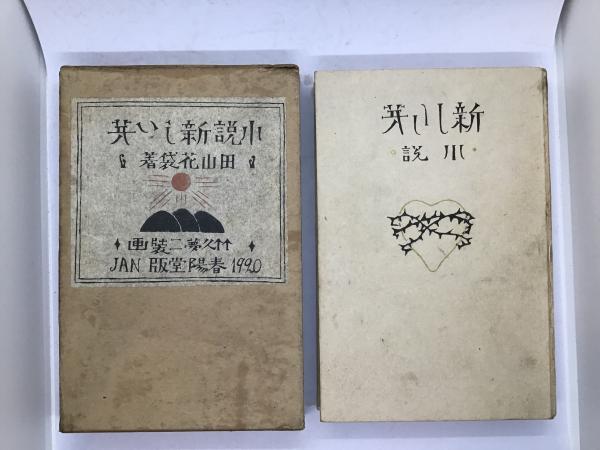 小説新しい芽
田山花袋著
竹久夢二裝画
1920 春陽堂版 JAN
新しい芽
小説